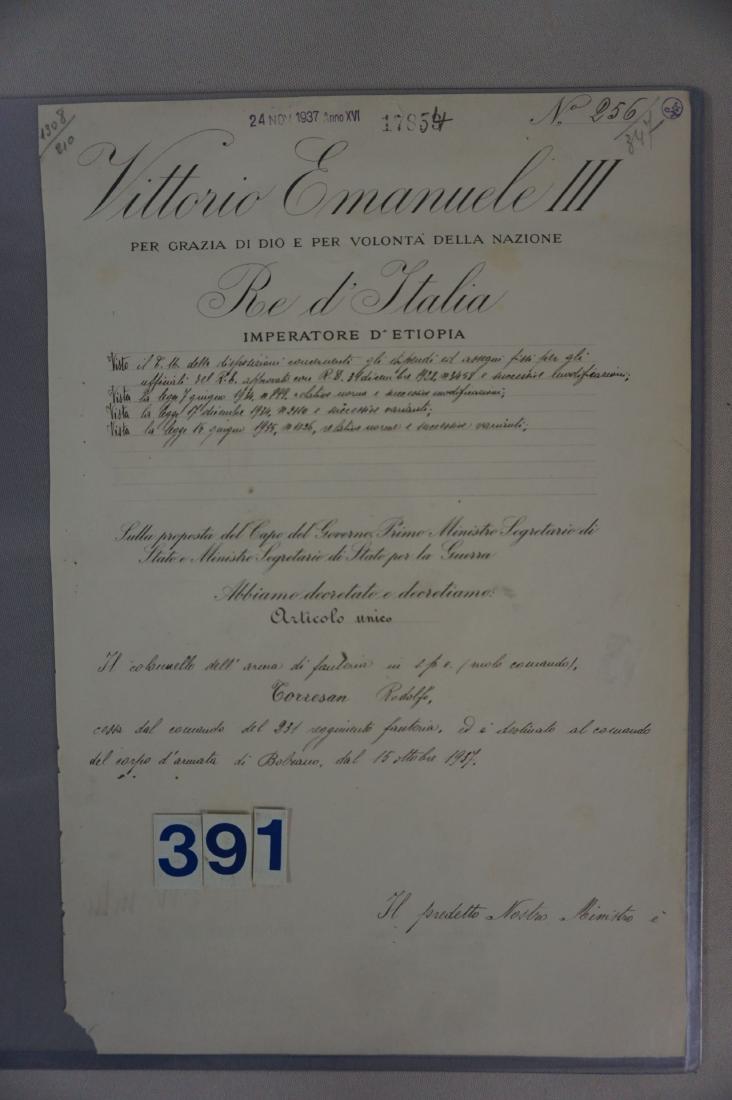 1308
210
24 NOV 1937 Anno XVI
17854
N.º 256
347
Vittorio Emanuele III
PER GRAZIA DI DIO E PER VOLONTÀ DELLA NAZIONE
Re d'Italia
IMPERATORE D'ETIOPIA
Visto il T. U. delle disposizioni concernenti gli stipendi ed assegni fissi per gli
ufficiali del R. E. approvato con R. D. dicembre 1922, n. 3458 e successive modificazioni;
Vista la legge 7 giugno 1934, n. 899, relative norme e successive modificazioni;
Vista la legge 17 dicembre 1934, n. 2110 e successive varianti;
Vista la legge giugno 1935, n. 1126, relative norme e successive varianti;
Sulla proposta del Capo del Governo, Primo Ministro Segretario di
Stato e Ministro Segretario di Stato per la Guerra
Abbiamo decretato e decretiamo:
Articolo unico
Il colonnello dell'arma di fanteria in s.p.e. (ruolo comando),
Torresan Rodolfo,
cessa dal comando del 231 reggimento fanteria, ed è destinato al comando
del corpo d'armata di Bolzano, dal 15 ottobre 1937.
391
Il predetto Nostro Ministro è